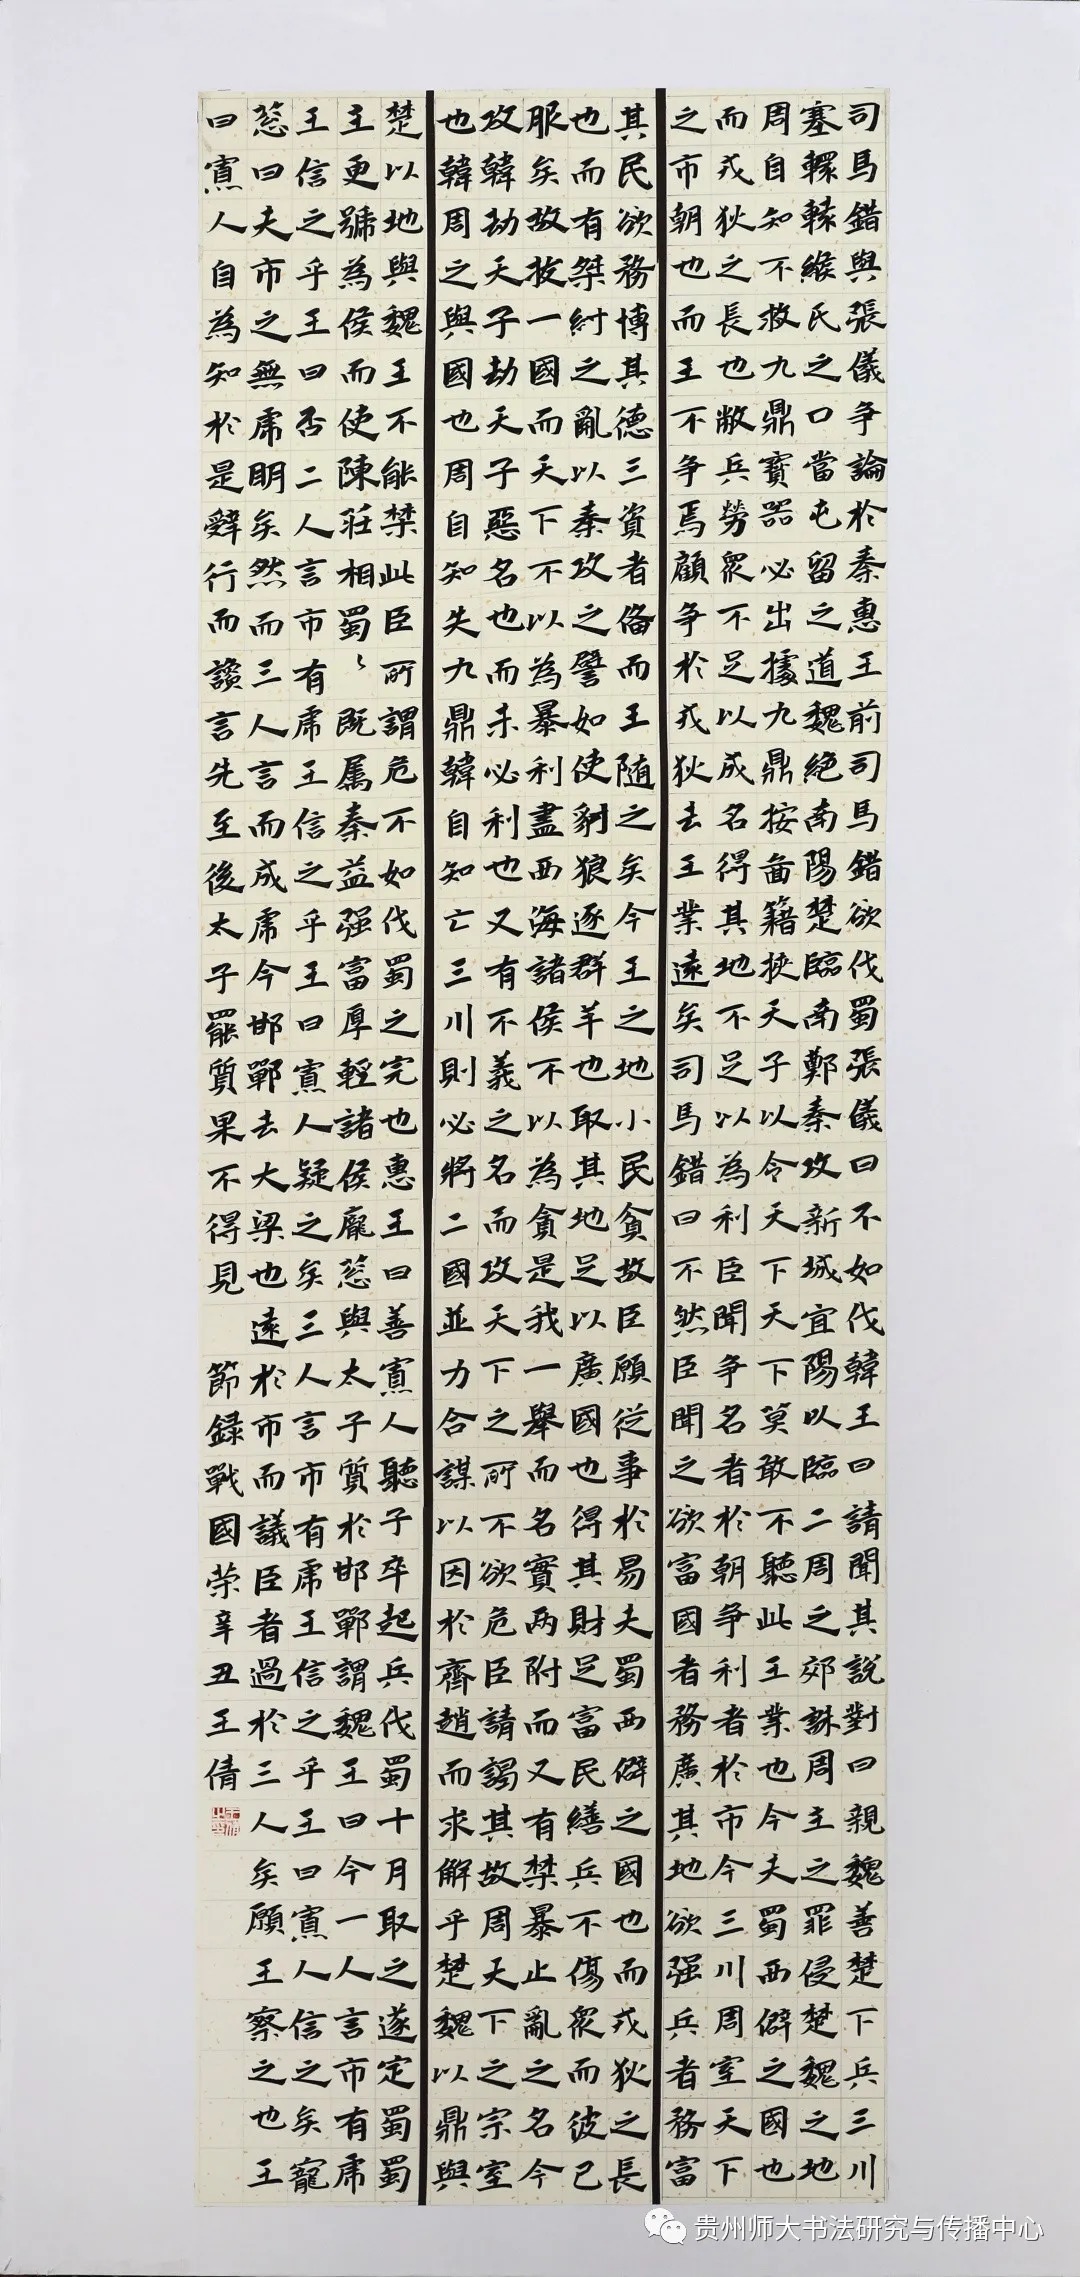 司馬錯與張儀爭論於秦惠王前司馬錯欲伐蜀張儀曰不如伐韓王曰請聞其說對曰親魏善楚下兵三川
塞轘轅緱氏之口當屯留之道魏絕南陽楚臨南鄭秦攻新城宜陽以臨二周之郊誅周主之罪侵楚魏之地
周自知不救九鼎寶器必出據九鼎按畗籍挾天子以令天下天下莫敢不聽此王業也今夫蜀西僻之國也
而戎狄之長也敝兵勞眾不足以成名得其地不足以為利臣聞爭名者於朝爭利者於市今三川周室天下
之市朝也而王不爭焉顧爭於戎狄去王業遠矣司馬錯曰不然臣聞之欲富國者務廣其地欲强兵者務富
其民欲務博其德三資者俻而王随之矣今王之地小民貧故臣願従事於易夫蜀西僻之國也而戎狄之長
也而有桀紂之亂以秦攻之譬如使豺狼逐群羊也取其地足以廣國也得其財足富民繕兵不傷眾而彼已
服矣故拔一國而天下不以為暴利盡西海諸侯不以為貪是我一舉而名實兩附而又有禁暴止亂之名今
攻韓劫天子劫天子惡名也而未必利也又有不義之名而攻天下之所不欲危臣請謁其故周天下之宗室
也韓周之與國也周自知失九鼎韓自知亡三川則必將二國並力合謀以因於齊趙而求解乎楚魏以鼎與
楚以地與魏王不能禁此臣所謂危不如伐蜀之完也惠王曰善寡人聽子卒起兵伐蜀十月取之遂定蜀蜀
主更號為侯而使陳莊相蜀〻既属秦益强富厚輕諸侯龐蔥與太子質於邯鄲謂魏王曰今一人言市有虎
王信之乎王曰否二人言市有虎王信之乎王曰寡人疑之矣三人言市有虎王信之乎王曰寡人信之矣寵
蔥曰夫市之無虎明矣然而三人言而成虎今邯鄲去大梁也遠於市而議臣者過於三人矣願王察之也王
曰寡人自為知於是辭行而讒言先至後太子罷質果不得見 節録戰國榮辛丑王倩
贵州师大书法研究与传播中心